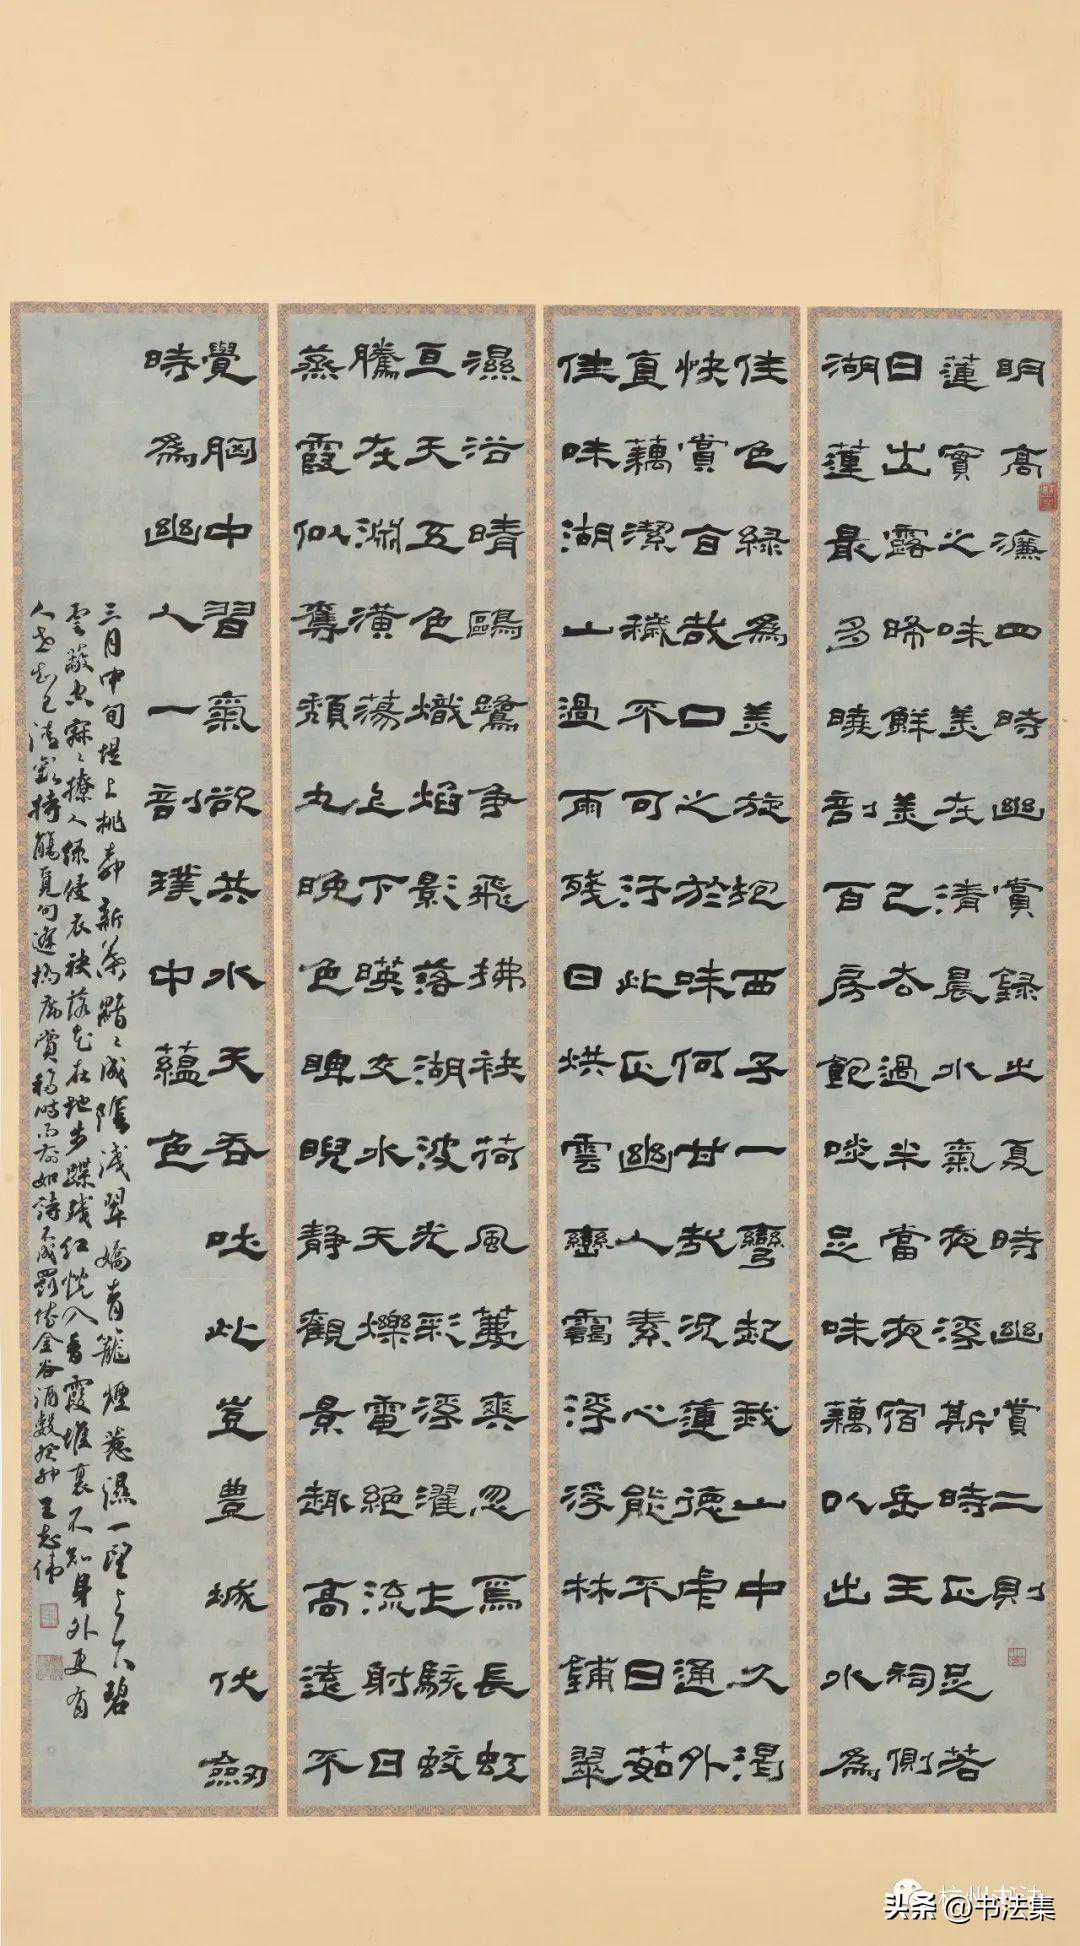 明高濂四時幽賞錄之夏時幽賞二則
蓮實之味美在清晨水氣夜浮斯時正足若
日出露晞鮮美已去過半當夜宿岳王祠側
湖蓮最多曉剖百房飽啖足味藕以出水為
佳色綠為美旋抱西子一彎起栽山中久渴
快賞旨哉口之於味何甘哉況蓮德虛通外
直藕潔穢不可汙此正幽人素心能不日茹
佳味湖山過雨殘日烘雲巒靄浮浮林鋪翠
濕浴晴鷗鷺爭飛拂袂荷風薦爽忽焉長虹
亙天五色熾焰影落湖波光彩浮濯乍駭蛟
騰在淵潢蕩上下暎交水天爍電絕流射日
蒸霞似奪頹丸晚色睥睨靜觀景趣高遠不
覺胸中習氣欲共水天吞吐此豈豐城伏劍
時為幽人一剖璞中蘊色
三月中旬堤上桃舒新葉黯黯成陰淺翠嬌青籠煙惹濕一望上下碧
雲蔽空寂寂撩人綠侵衣袂落花在地步蹀殘紅恍入香霞堆裏不知身外更有
人世知己清歡持觴覓句席賞移時而前如詩不成罰依金谷酒數癸卯王志偉
杭州书法
头条@书法集